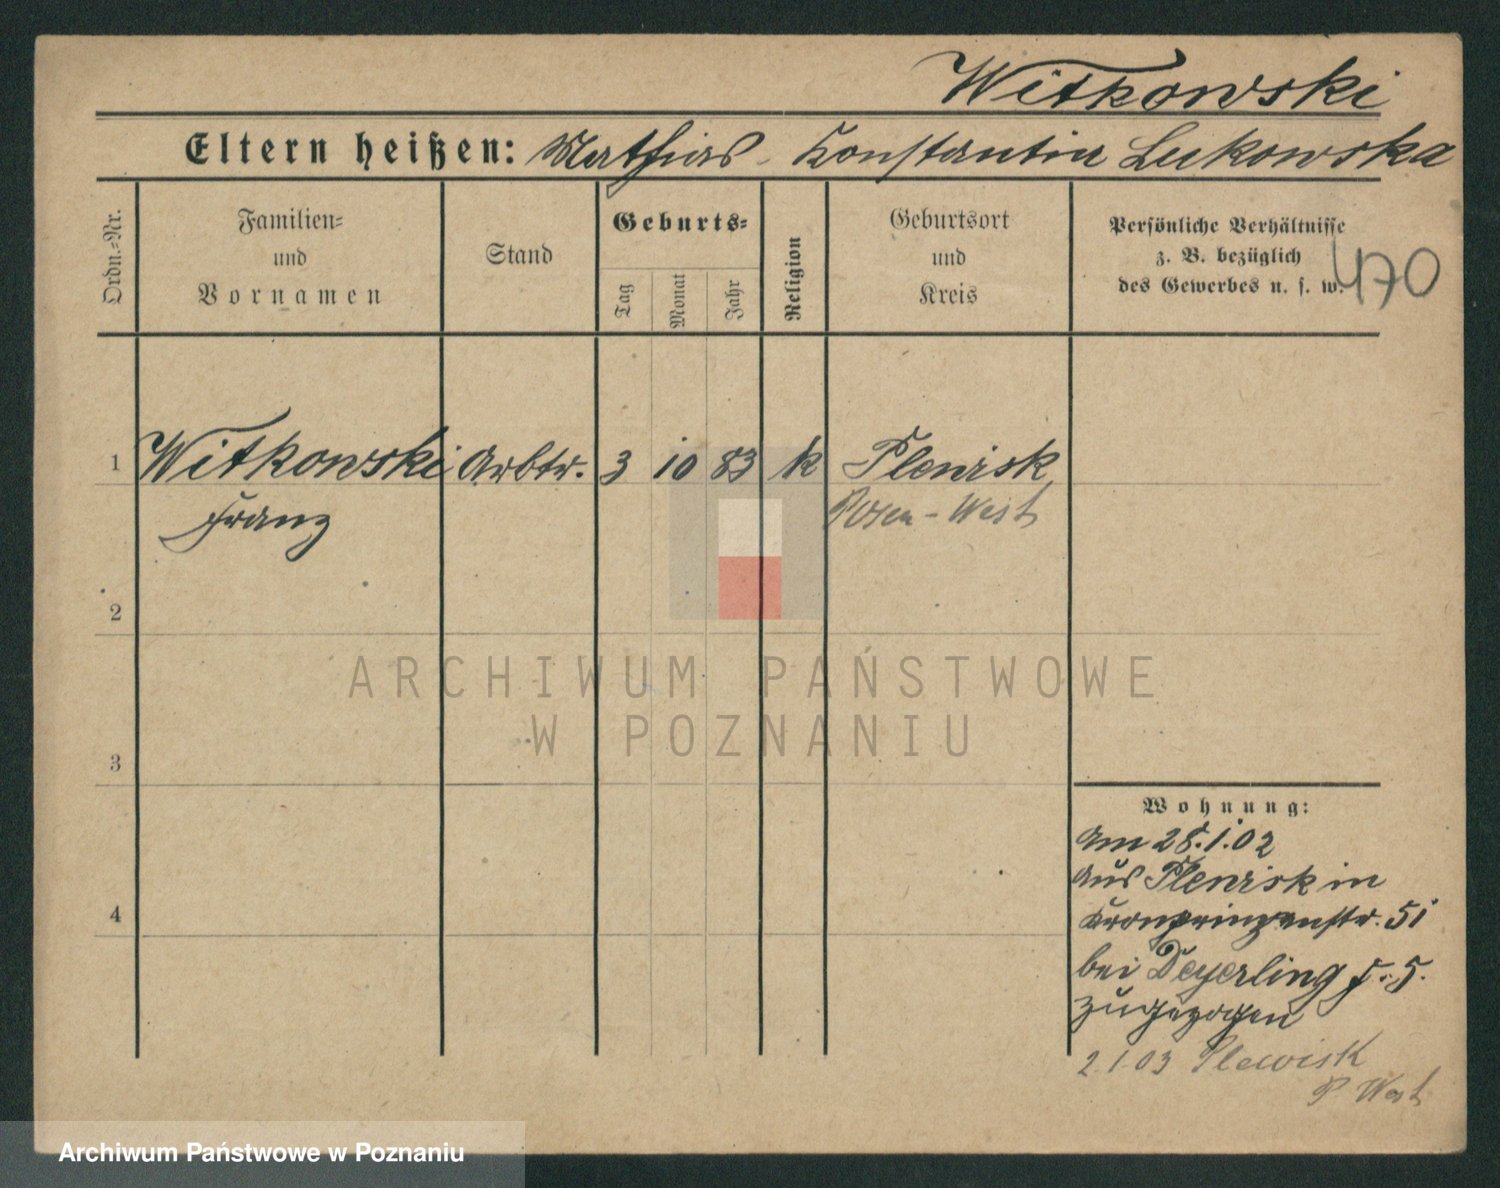 Witkowski
Eltern heißen: Mathias - Konstantin Lukowska
Ordn.-Nr.
Familien-
und
Vornamen
Stand
Geburts-
Tag
Monat
Jahr
Religion
Geburtsort
und
Kreis
Persönliche Verhältnisse
z. B. bezüglich
des Gewerbes u. s. w.
470
1 Witkowski Arbtr. 3 10 83 k Plewisk
Franz Posen - West
2
3
4
ARCHIWUM PAŃSTWOWE
W POZNANIU
Wohnung:
Am 28.1.02
aus Plewisk in
Kronprinzenstr. 51
bei Deyerling
zugezogen
2.1.03 Plewisk
P West
Archiwum Państwowe w Poznaniu